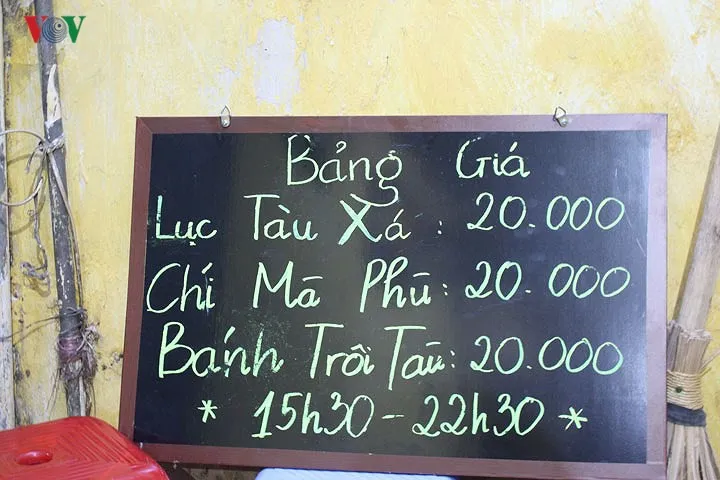 VOV
Bảng Giá
Lục Tàu Xá : 20.000
Chí Mā Phū: 20.000
Bánh Trôi Tàu: 20.000
* 15h30 - 22h30 *